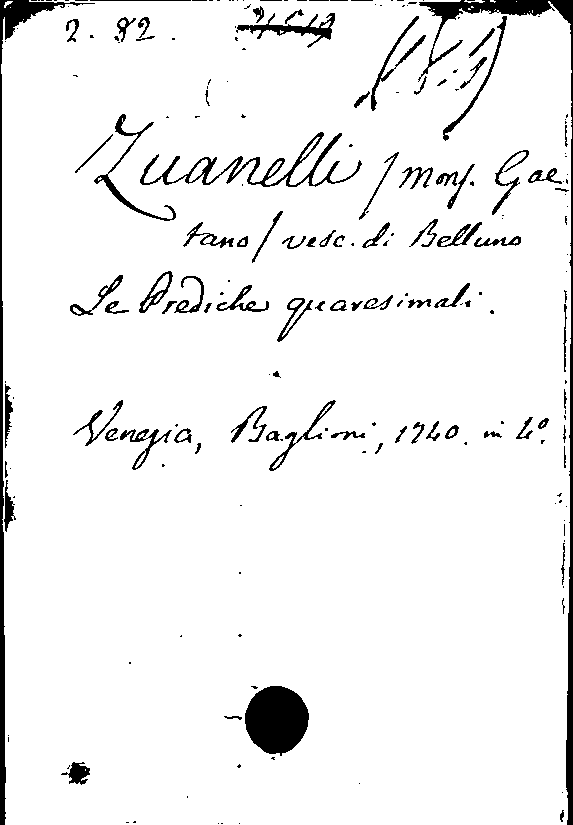 2. 82.
Zuanelli / Mons. Gae-
tano / vesc. di Belluno
Le Prediche quaresimali.
Venezia, Baglioni, 1740. in 4°.